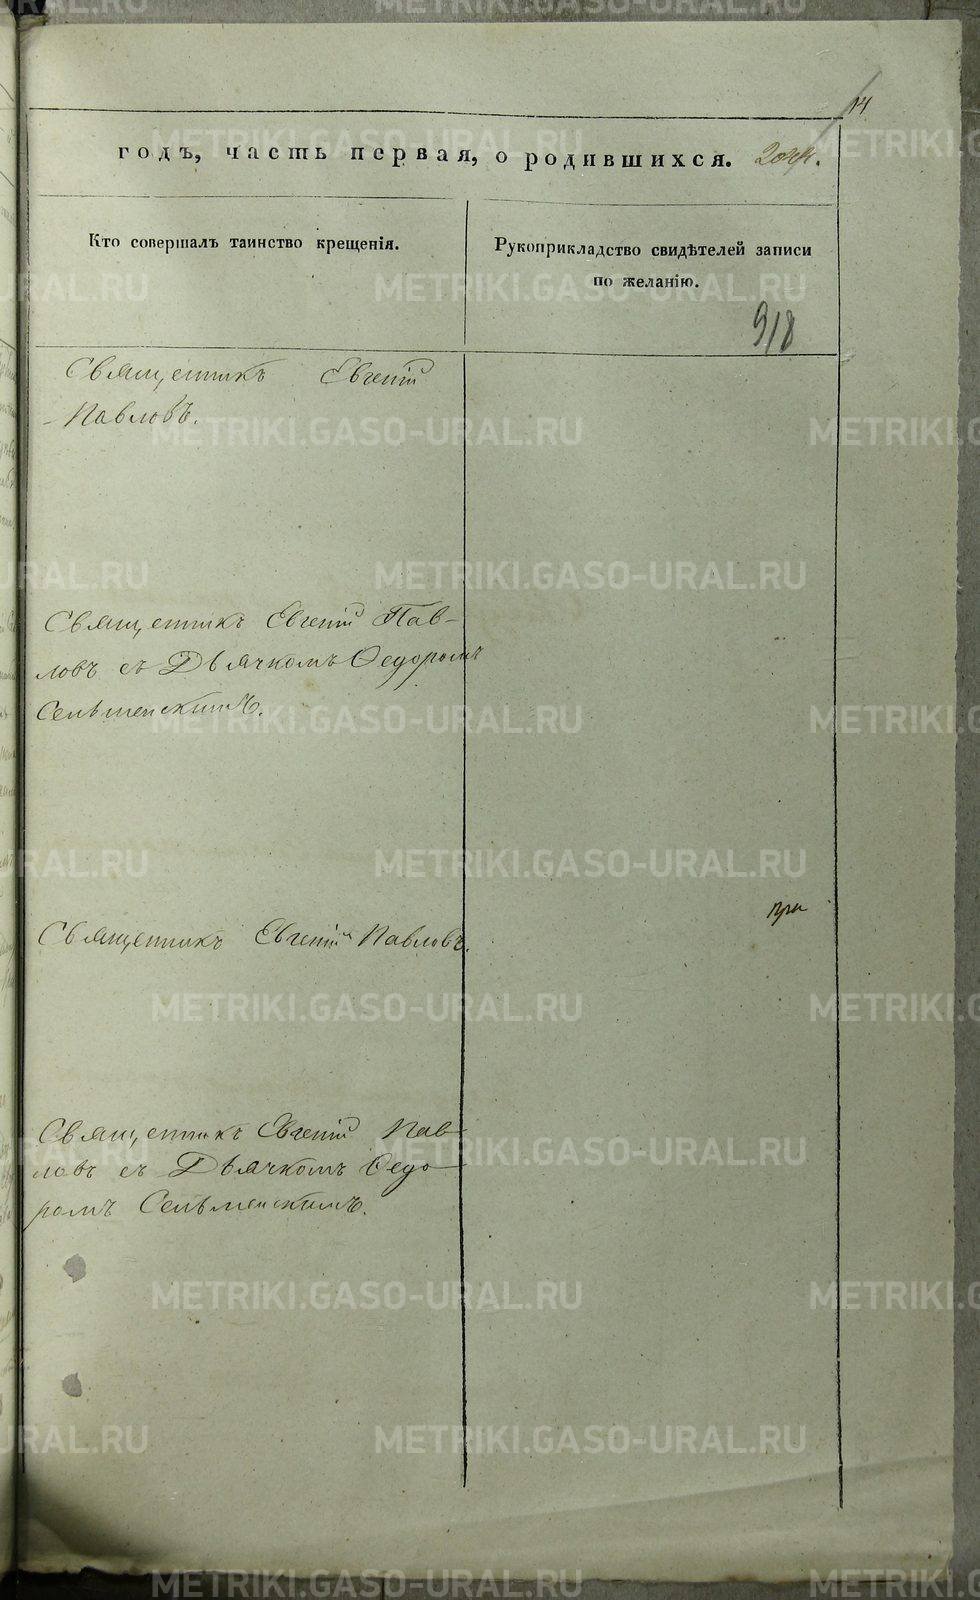 14
годъ, часть первая, о родившихся.
Кто совершалъ таинство крещенія.
Рукоприкладство свидѣтелей записи
по желанію.
918
Священникъ Евгеній
Павловъ.
Священникъ Евгеній Пав-
ловъ съ Дьячкомъ Ѳедоромъ
Сельменскимъ.
при
Священникъ Евгеній Павловъ.
Священникъ Евгеній Пав-
ловъ съ Дьячкомъ Ѳедо
ромъ Сельменскимъ.
METRIKI.GASO-URAL.RU